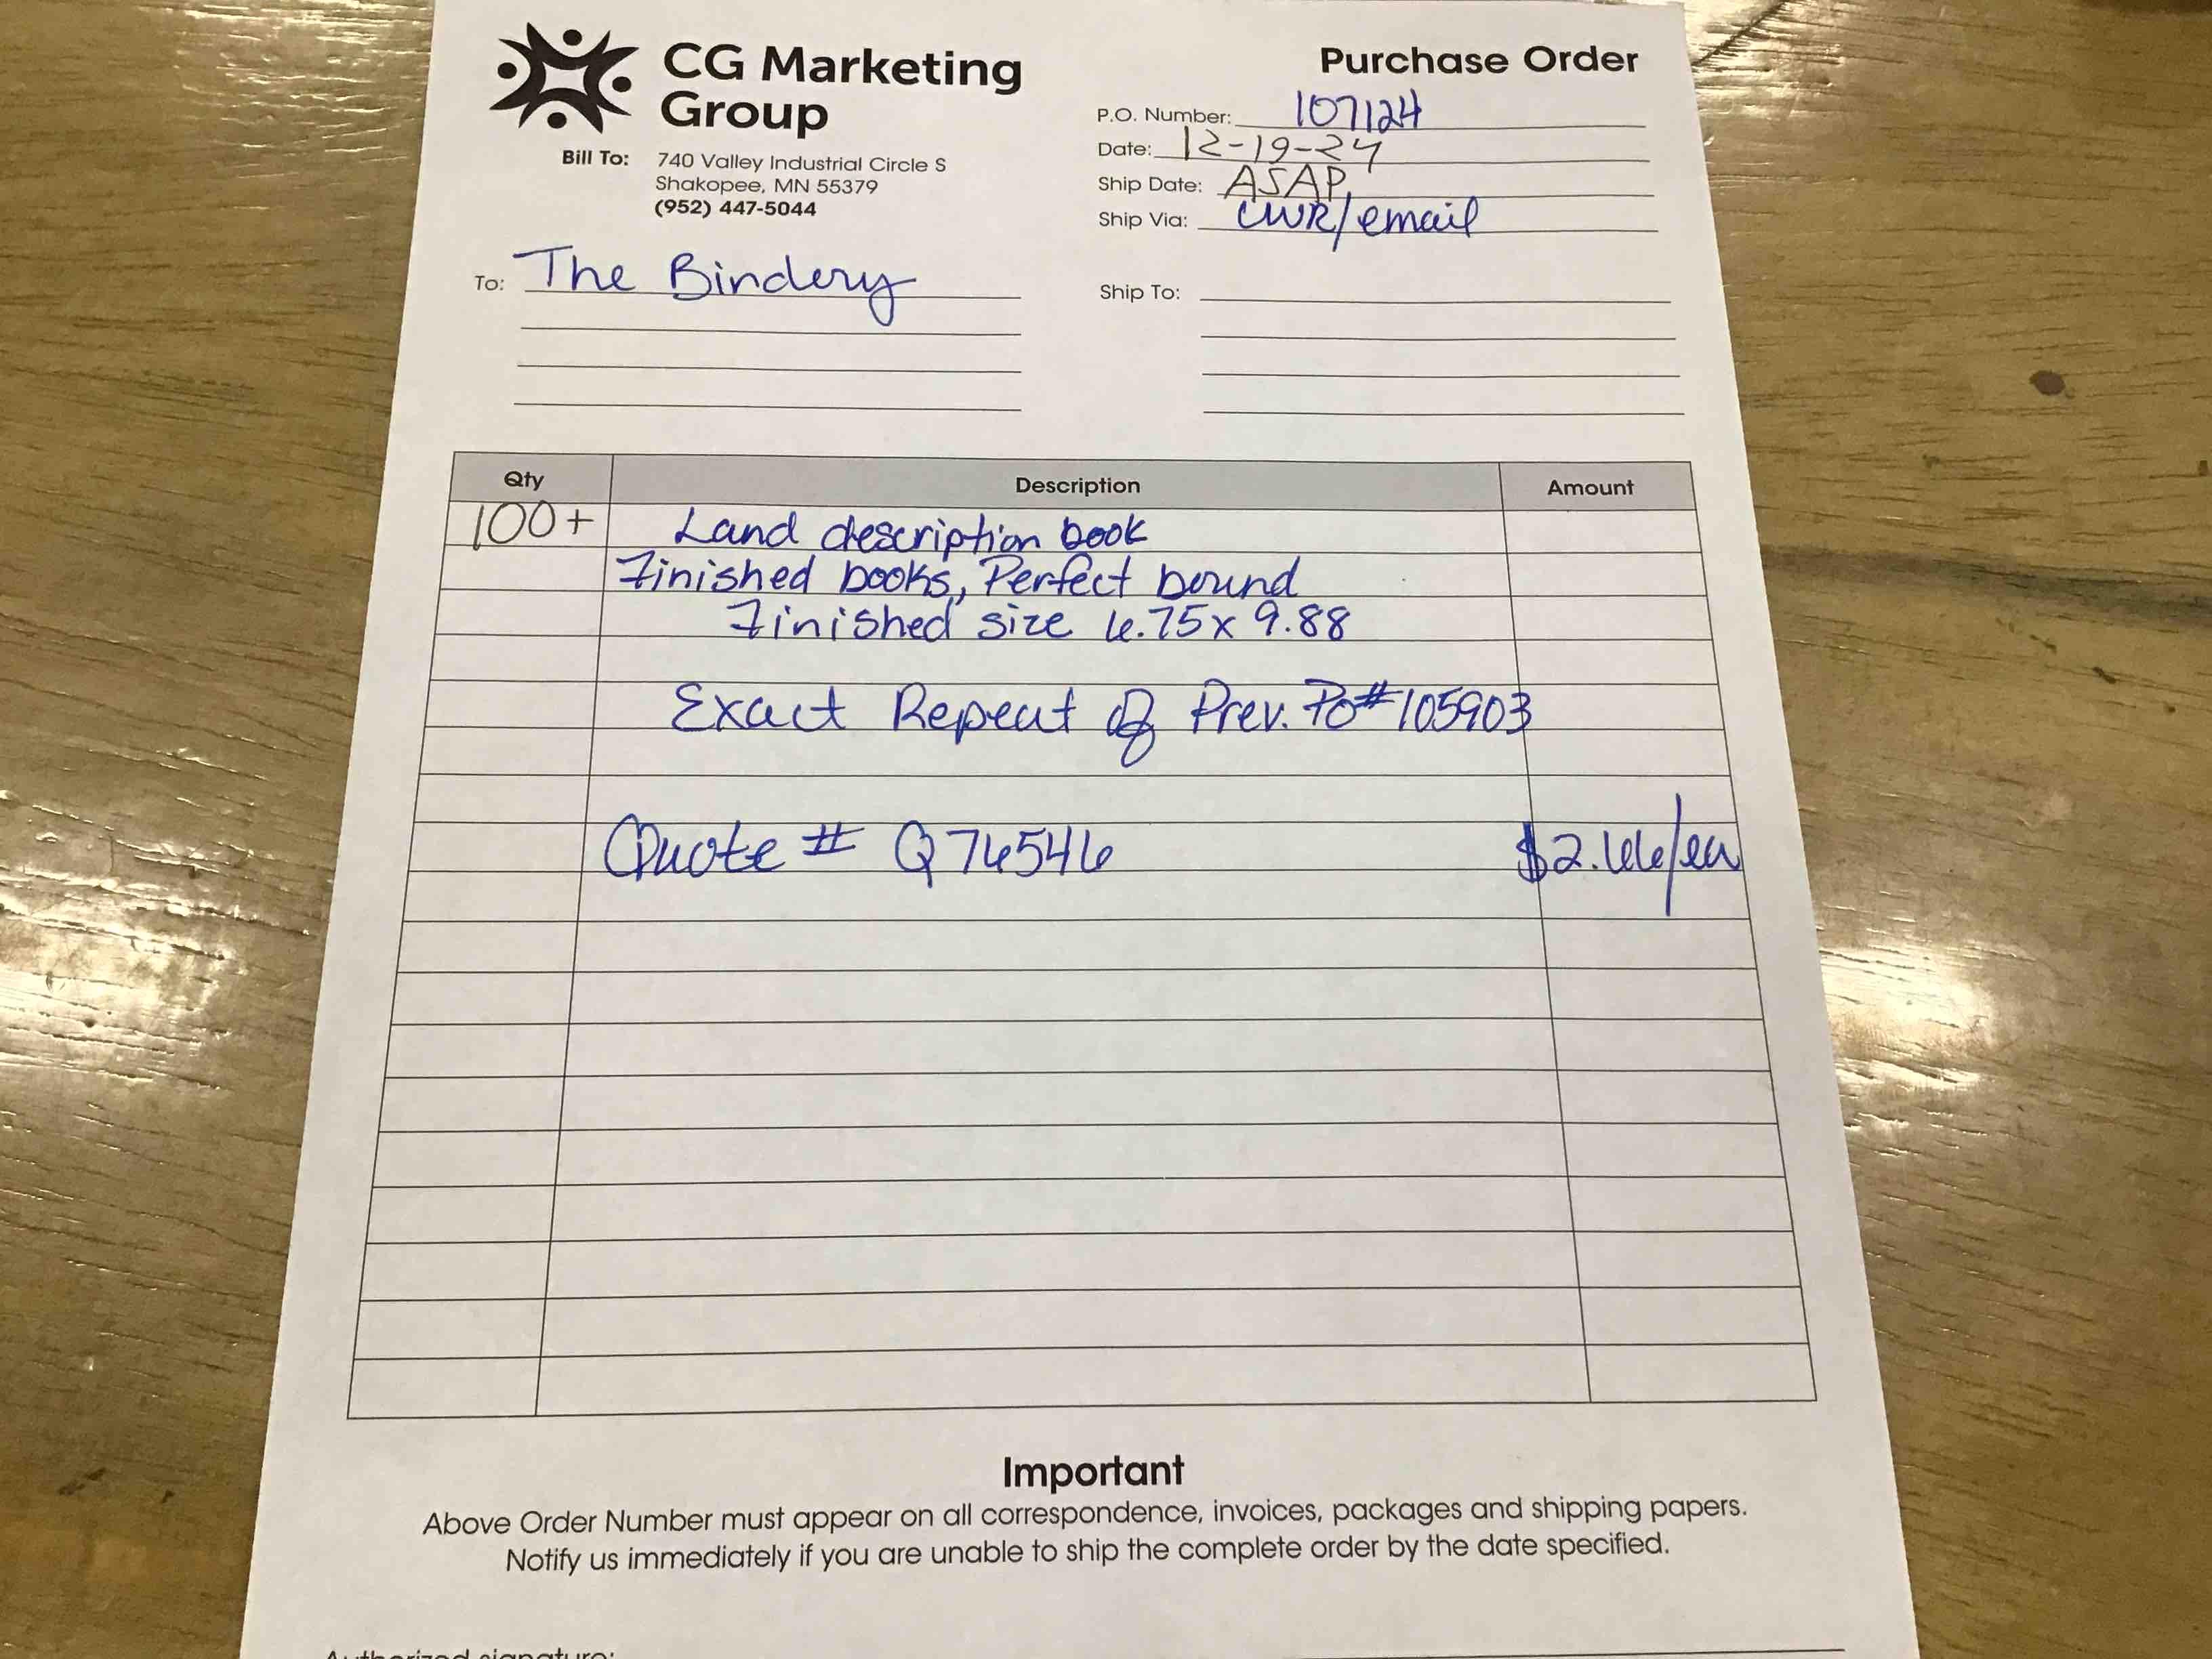 CG Marketing
Group
Bill To: 740 Valley Industrial Circle S
Shakopee, MN 55379
(952) 447-5044
Purchase Order
P.O. Number: 107124
Date: 12-19-24
Ship Date: ASAP
Ship Via: CWR/email
To: The Bindery
Ship To:
Qty Description Amount
100+ Land description book
Finished books, Perfect bound
Finished size 6.75 x 9.88
Exact Repeat of Prev. Po# 105903
Quote # Q76546 $2.66/ea
Important
Above Order Number must appear on all correspondence, invoices, packages and shipping papers.
Notify us immediately if you are unable to ship the complete order by the date specified.
Authorized signature: